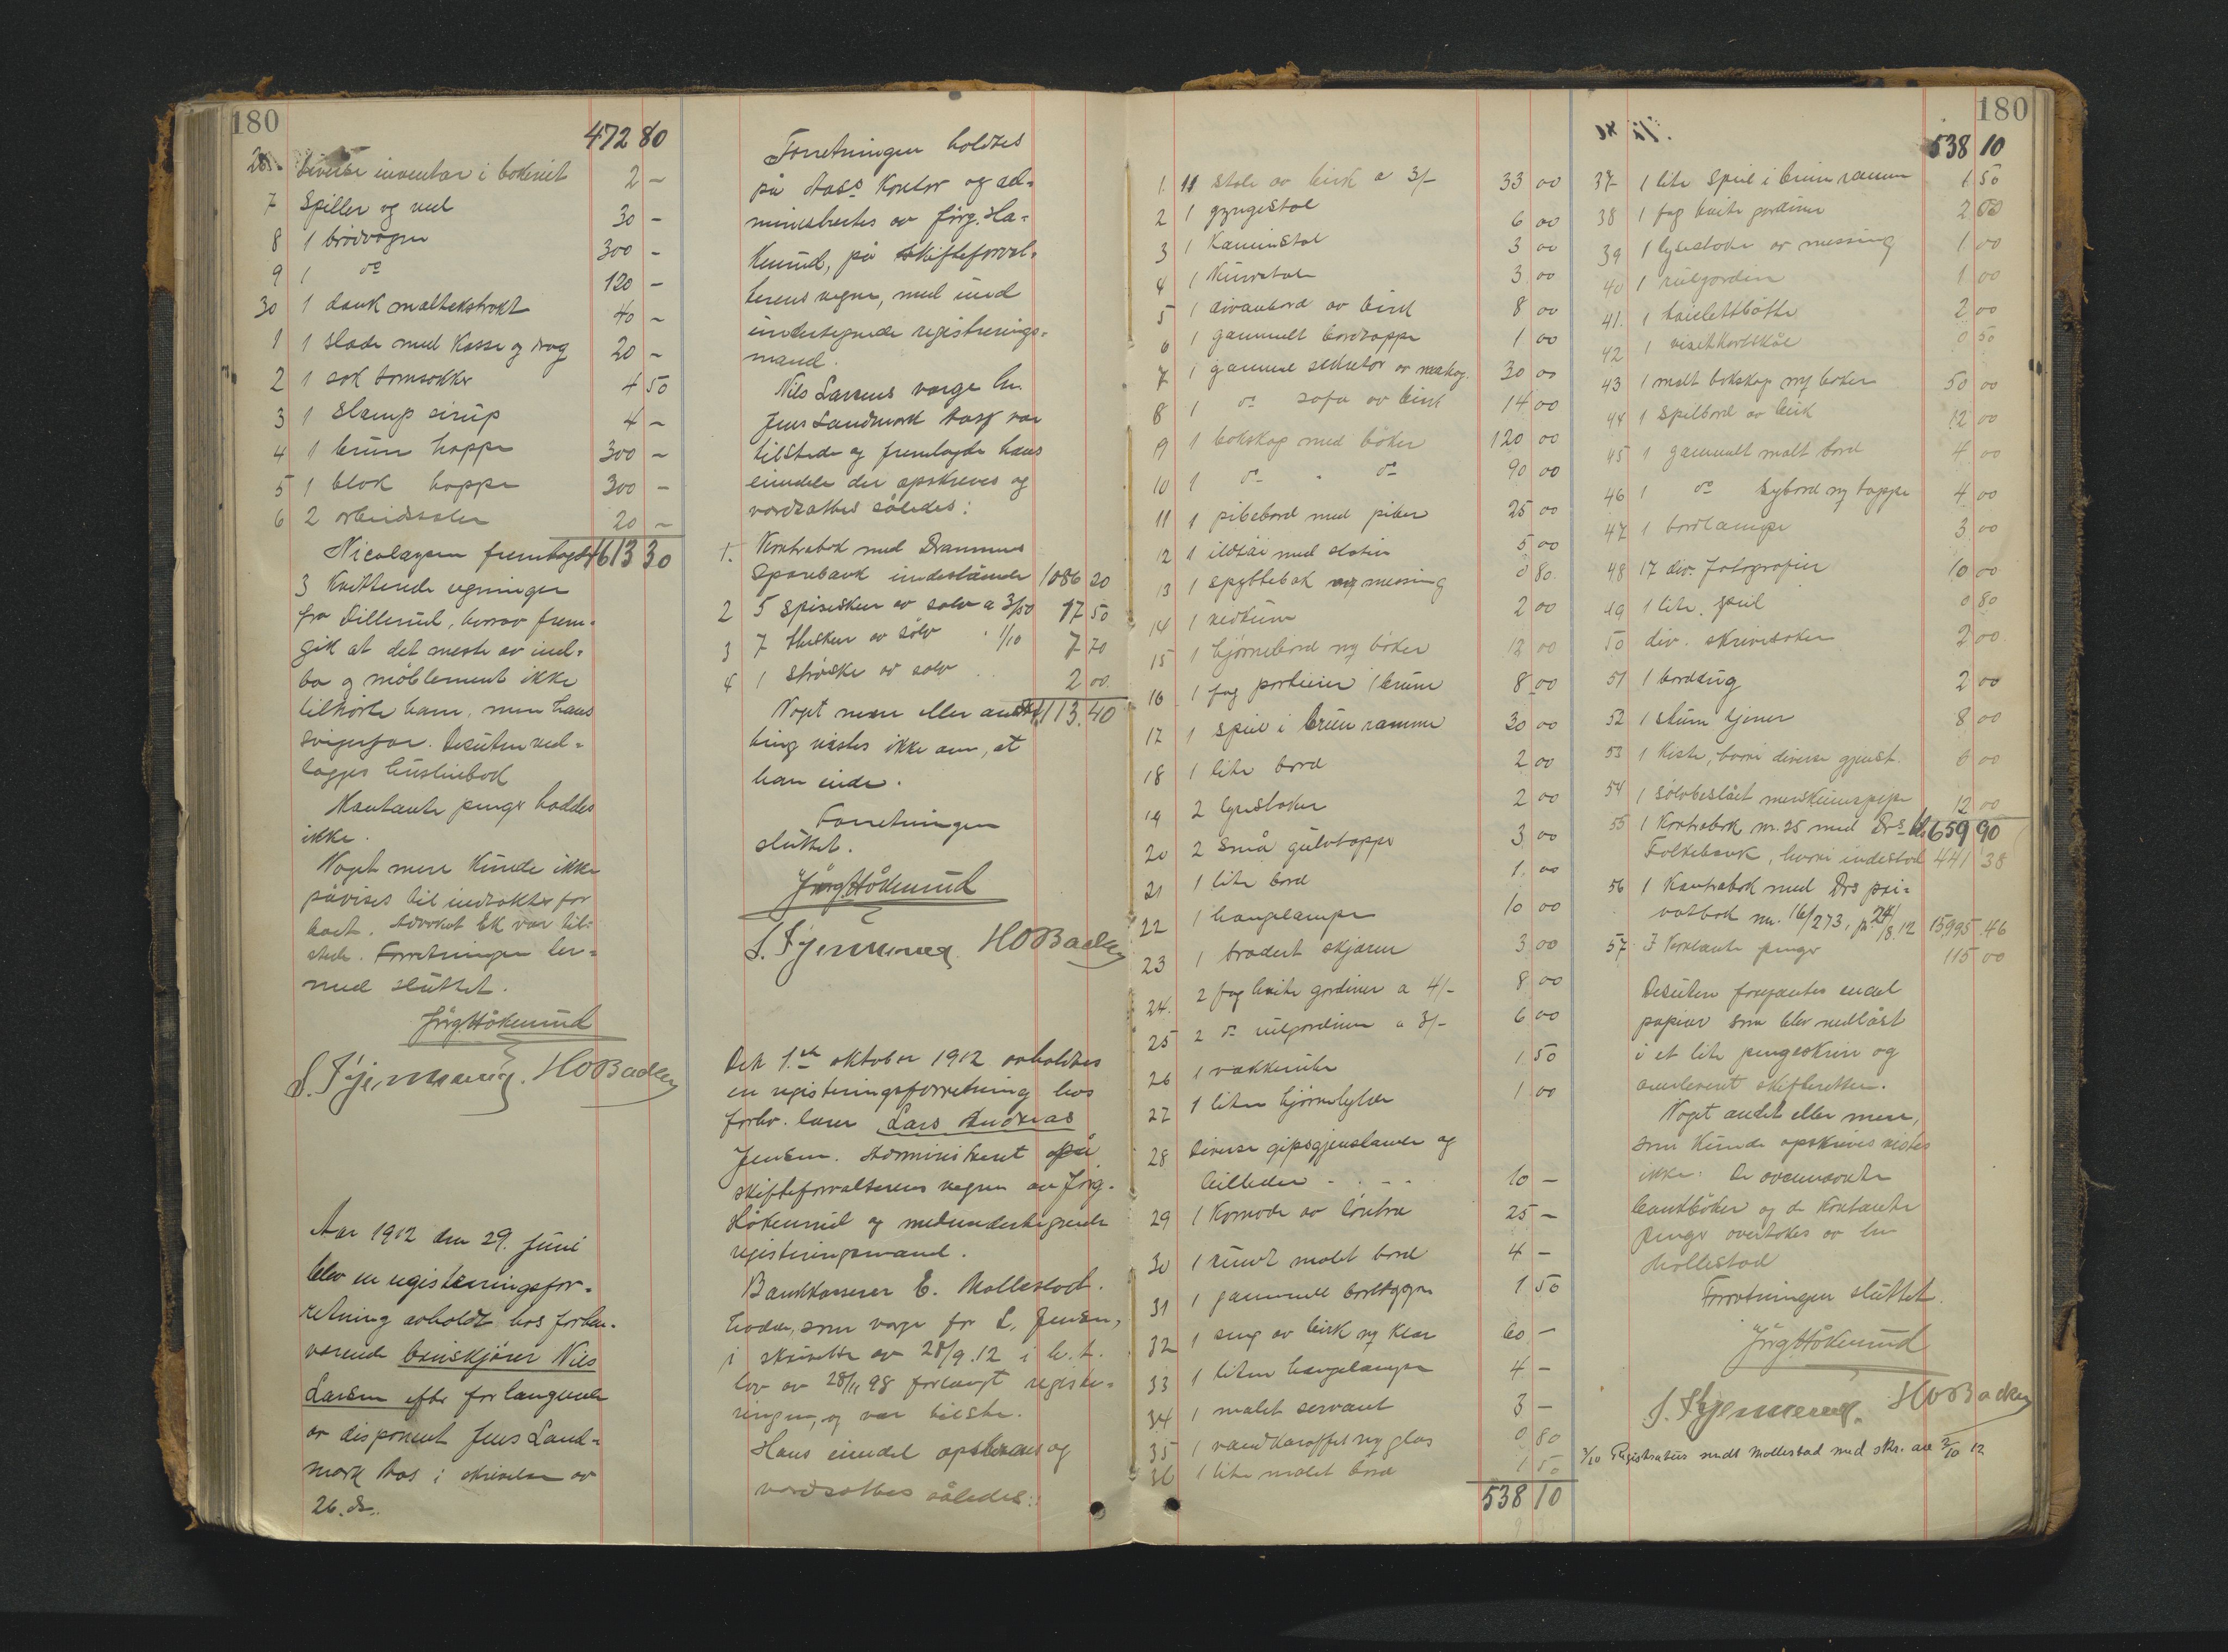 180
472 80
26. inventar i bakeriet 2 –
7 Spiller og ved 30 –
8 1 brødvogn 300 –
9 1 do 120 –
30 1 dank maltekstrakt 40 –
1 1 slade med Kasse og drag 20 –
2 1 sæk tomsækker 4 50
3 1 Slamp sirup 4 –
4 1 brun hoppe 300 –
5 1 blak hoppe 300 –
6 2 arbeidssæler 20 –
Nicolaysen fremlagde 1613 30
3 kvitterede regninger
fra Dillerud, hvorav frem-
gik at det meste av ind-
bo og møblement ikke
tilhørte ham, men hans
svigerfar. Desuten ved-
lægges
Kontante penger haddes
ikke.
Noget mere kunde ikke
påvises til indtækter for
boet. Advokat Ek var til-
stede. Forretningen her-
med sluttet.
Jørg. Håkenrud
H O Backer
Aar 1912 den 29. juni
blev en registreringsfor-
retning avholdt hos forhen-
værende Nils
Larsen efter forlangende
av disponent Jens Land-
mark Aas i skrivelse av
26. ds.
Forretningen holdtes
på Aass Kontor og ad-
ministrertes av Jørg. Hå-
kenrud, på skifteforval-
terens vegne, med med
undertegnede registrerings-
mænd.
Nils Larsens værge hr.
Jens Landmark Aass var
tilstede og fremlagde hans
eiendele der opskreves og
værdsattes således:
1. Kontrabok med Drammens
Sparebank indestående 1086 20
2 5 spiseskeer av sølv a 3/50 17 50
3 7 theskeer av sølv " 1/10 7 70
4 1 strøske av sølv 2 00
Noget mere eller andet 1113.40
ting vistes ikke om, at
han eiede.
Forretningen
sluttet.
Jørg Håkenrud
H O Backer
Den 1.ste oktober 1912 avholdtes
en registreringsforretning hos
forhv. lærer Lars Andreas
Jensen. Administreret på
skifteforvalterens vegne av Jørg.
Håkenrud og medundertegnede
registreringsmænd.
Bankkasserer E. Mollestad.
hadde, som værge for L. Jensen,
i skrivelse av 28/9.12 i h. t.
lov av 28/11 98 forlangt registre-
ringen, og var tilstede.
Hans eiendel opskreves og
værdsattes således:
1. 11 stole av birk a 3/– 33 00
2 1 gyngestol 6 00
3 1 Kaminstol 3 00
4 1 Kurvstol 3 00
5 1 divanbord av birk 8 00
6 1 gammelt bordtæppe 1 00
7 1 gammel sekretær av mahog. 30 00
8 1 do sofa av birk 14 00
9 1 bokskap med bøker 120 00
10 1 do " do 90 00
11 1 pibebord med piber 25 00
12 1 med stativ 5 00
13 1 spyttebak av messing 0 80
14 1 vedkurv 2 00
15 1 hjørnebord m/ bøker 12 00
16 1 fag portierer brune 8 00
17 1 speil i brun ramme 30 00
18 1 lite bord 2 00
19 2 lysestaker 2 00
20 2 små gulvtæpper 3 00
21 1 lite bord 1 00
22 1 hængelampe 10 00
23 1 brodert skjærm 3 00
24. 2 fag hvite gardiner a 4/– 8 00
25 2 do rulgardiner a 3/– 6 00
26 1 vækkerur 1 50
27 1 liten hjørnehylde 1 00
28 Diverse gipsgjenstande og
billeder - - - - 10 –
29 1 Komode av løvtræ 25 –
30 1 rundt malet bord 4 –
31 1 gammelt bordtæppe 1 50
32 1 seng av birk m/ klær 60 –
33 1 liten hængelampe 4 –
34 1 malet servant 3 –
35 1 vandkaraffel m/ glas 0 80
36 1 lite malet bord 1 50
538 10
180
538 10
37 1 lite speil i brun ramme 1 50
38 1 fag hvite gardiner 2 00
39 1 lysestake av messing 1 00
40 1 rulgardin 1 00
41. 1 toilettbøtte 2 00
42 1 visitkortskål 0 50
43 1 malt bokskap m/ bøker 50 00
44 1 spilbord av birk 12 00
45 1 gammelt malt bord 4 00
46 1 do sybord m/ tæppe 4 00
47 1 bordlampe 3 00
48 17 div. fotografier 10 00
49 1 lite speil 0 80
50 div. skrivesaker 2 00
51 1 bordtæug 2 00
52 1 stum tjener 8 00
53 1 Kiste, hvori diverse gjenst. 6 00
54 1 sølvbeslåt merskumspipe 12 00
55 1 Kontrabok nr. 25 med Drs 659 90
Folkebank, hvori indestod 441 38
56 1 Kontrabok med Drs pri-
vatbank nr. 16/273, pr 24/8.12 15995.46
57 I Kontante penger 115 00
Desuten forefantes endel
papirer som blev nedlåst
i et lite pengeskrin og
overleveret skifteretten.
Noget andet eller mere,
som kunde opskrives vistes
ikke. De ovennævnte
bankbøker og de kontante
penger overtokes av hr
Mollestad
Forretningen sluttet.
Jørg Håkenrud
H O Backer
3/10 Registratur sendt Mollestad med skr. av 2/10 12